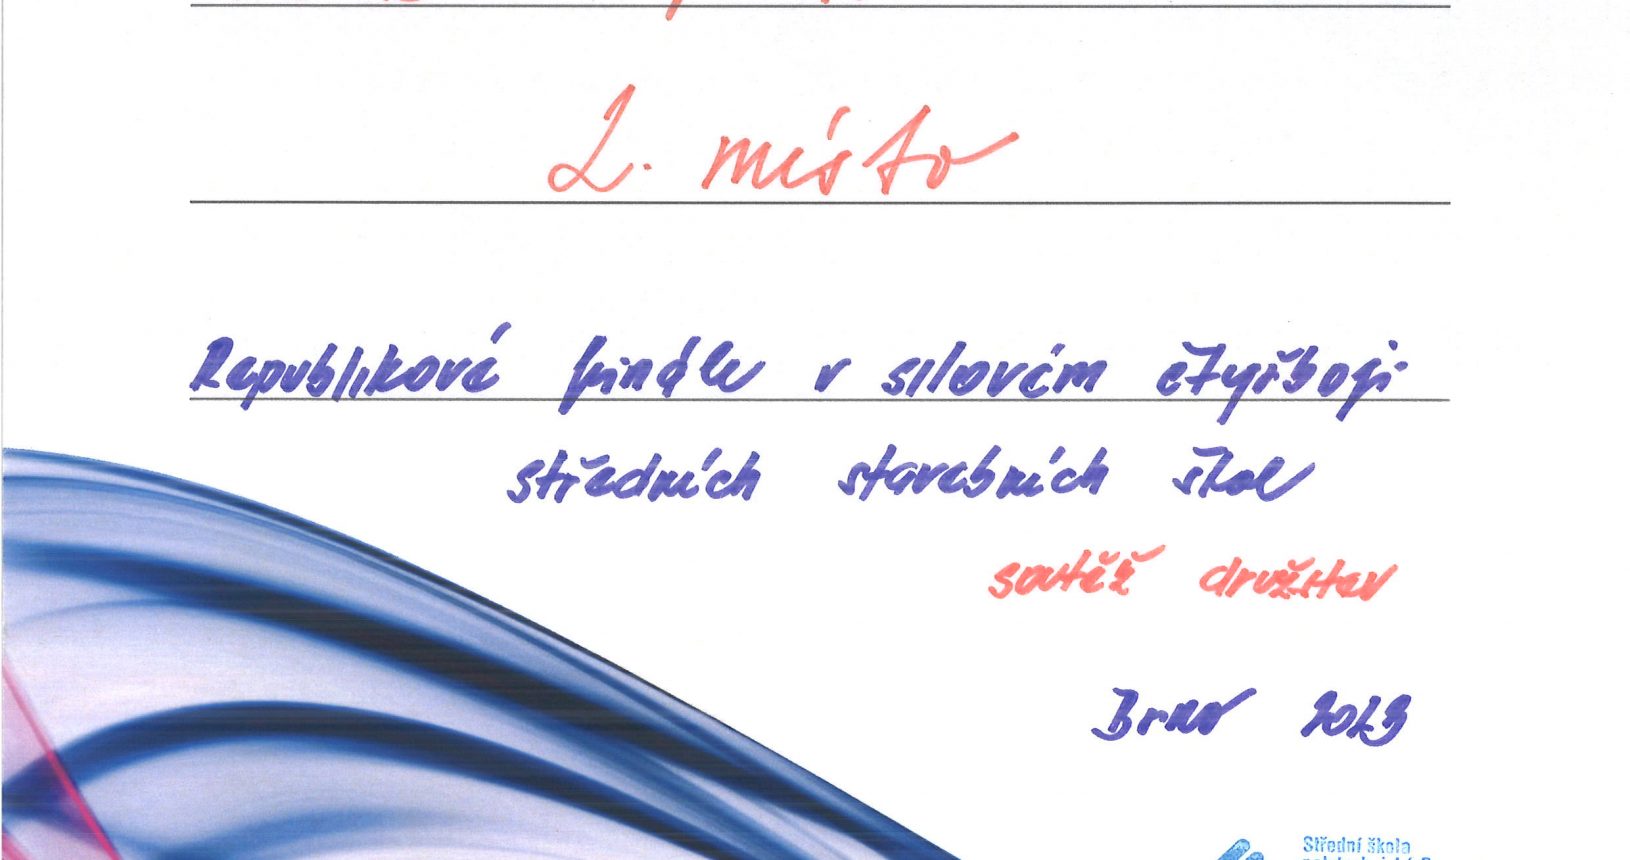 2. místo
Republikové finále v silovém čtyřboji
středních stavebních škol
soutěž družstev
Brno 2023
Střední škola